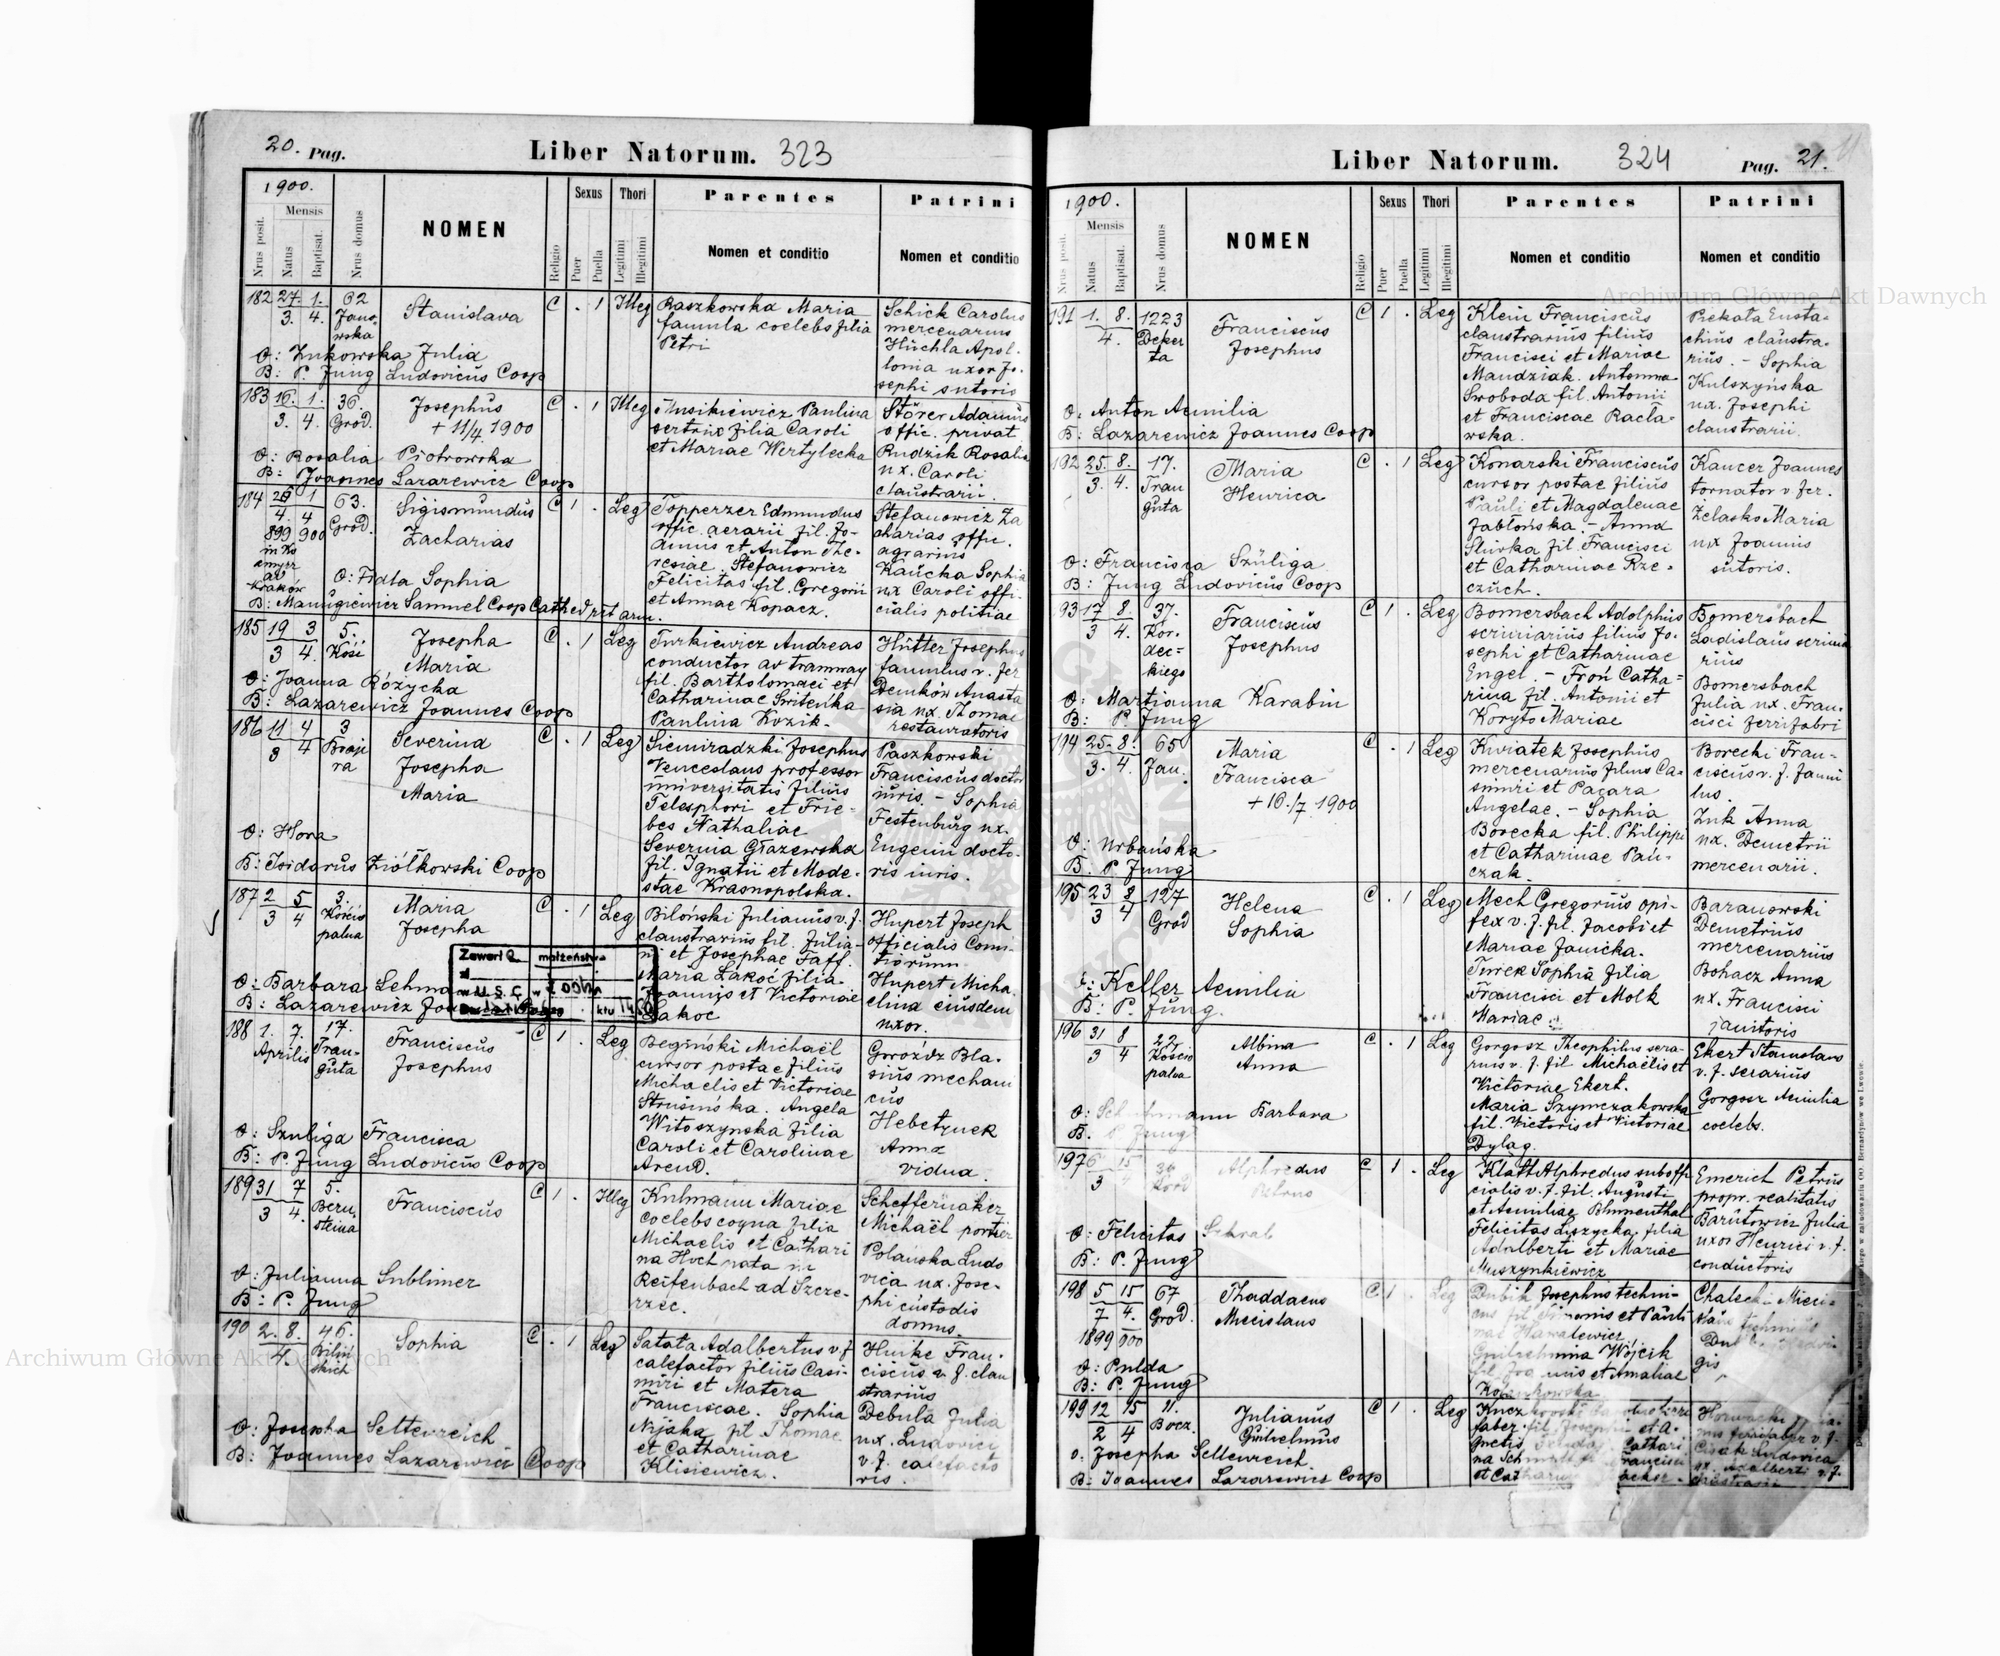 20. Pag.
Liber Natorum. 323
1900.
Nrus posit.
Mensis
Natus
Baptisat.
Nrus domus
NOMEN
Religio
Sexus
Puer
Puella
Thori
Legitimi
Illegitimi
Parentes
Nomen et conditio
Patrini
Nomen et conditio
182 27. 1. 62 Stanislava C . 1 Illeg Raszkowska Maria Schick Carolus
3. 4. Jano- famula coelebs filia mercenarius
wska Petri Hüchla Apol-
O: Zukowska Julia lonia uxor Jo-
B: P. Jung Ludovicus Coop sephi sutoris
183 16. 1. 36. Josephus C . 1 Illeg Musikiewicz Paulina Störer Adamus
3. 4. Grod. + 11/4 1900 sertrix filia Caroli offic. privat
et Mariae Wertylecka Rudzik Rosalia
O: Rosalia Piotrowska ux. Caroli
B: Joannes Lazarewicz Coop claustrarii.
184 26 1 63. Sigismundus C 1 . Leg Topperzer Edmundus Stefanowicz Za
4 4 Grod. Zacharias offic. aerarii fil. Jo- charias offic.
899 900 annis et Anton The- agrarius
resiae. Stefanowicz Kaucka Sophia
Kraków O: Frata Sophia Felicitas fil. Gregorii ux Caroli offi-
B: Manugiewicz Samuel Coop Cathed rit arm. et Annae Kopacz. cialis politiae
185 19 3 5. Josepha C . 1 Leg Turkiewicz Andreas Hütter Josephus
3 4. Kośi Maria conductor av tramway famulus v. fer
O: Joanna Różycka fil. Bartholomaei et Demków Anasta
B: Lazarewicz Joannes Coop Catharinae Switenka sia ux. Thomae
Paulina Kozik. restauratoris
186 11 4 3 Severina C . 1 Leg Siemiradzki Josephus Paszkowski
3 4 Braje Josepha Venceslaus professor Franciscus doctor
ra Maria universitatis filius iuris. - Sophia
Telesphori et Frie- Festenburg ux.
O: Hora bes Nathaliae Eugenii docto-
B: Isidorus Ziółkowski Coop Severina Głazewska ris iuris.
fil. Ignatii et Mode-
stae Krasnopolska.
187 2 5 3. Maria C . 1 Leg Biloński Julianus v. f. Hupert Joseph
3 4 Kościu Josepha claustrarius fil. Julia- officialis Comi-
palna ni et Josephae Faff. tiorum
O: Barbara Lehma Maria Łakoć filia Hupert Micha-
B: Lazarewicz Jo Joannis et Victoriae elina eiusdem
Łakoc uxor.
Zawarł małżeństwo
w U.S.C. w
188 1. 7. 17. Franciscus C 1 . Leg Begiński Michaël Gwoźdz Bla-
Aprilis Trau- Josephus cursor postae filius sius mechani
guta Michaelis et Victoriae cus
Strusińska. Angela Hebetynek
O: Szuliga Francisca Witoszynska filia Anna
B: P. Jung Ludovicus Coop Caroli et Carolinae vidua.
Arend.
189 31 7 5. Franciscus C 1 . Illeg Kulmann Mariae Scheffernaker
3 4. Bern- coelebs coqua filia Michaël portier
steina Michaelis et Cathari Polańska Ludo
O: Julianna Sublimer na Hoch nata in vica ux. Jose-
B: P. Jung Reifenbach ad Szcze- phi custodis
rzec. domus.
190 2. 8. 46. Sophia C . 1 Leg Satata Adalbertus v. f Huike Fran-
4. Biliń calefactor filius Casi- ciscus v. f. clau
skich miri et Matera strarius
O: Josepha Seltenreich Franciscae. Sophia Debula Julia
B: Joannes Lazarewicz Coop Nijaka fil. Thomae ux. Ludovici
et Catharinae v. f. calefacto
Klisiewicz. ris.
Liber Natorum. 324
Pag. 21.
1900.
Nrus posit.
Mensis
Natus
Baptisat.
Nrus domus
NOMEN
Religio
Sexus
Puer
Puella
Thori
Legitimi
Illegitimi
Parentes
Nomen et conditio
Patrini
Nomen et conditio
191 1. 8. 1223 Franciscus C 1 . Leg Klein Franciscus Piekata Eusta-
4. Deker Josephus claustrarius filius chius claustra-
ta Francisci et Mariae rius. - Sophia
Maudziak. Antonina Kulszyńska
O: Anton Aemilia Swoboda fil. Antonii ux. Josephi
B: Lazarewicz Joannes Coop et Franciscae Racła- claustrarii.
wska.
192 25. 8. 17. Maria C . 1 Leg Konarski Franciscus Kaucer Joannes
3. 4. Trau Henrica cursor postae filius tornator v. fer.
guta Pauli et Magdalenae Zelasko Maria
Jabłońska - Anna ux Joannis
O: Francisca Szuliga Sliwka fil. Francisci sutoris.
B: Jung Ludovicus Coop et Catharinae Rze-
czuch.
93 17 8. 37. Franciscus C 1 . Leg Bomersbach Adolphus Bomersbach
3 4. Kor- Josephus scriniarius filius Jo- Ladislaus scrinia
dec- sephi et Catharinae rius
kiego Engel. - Froń Catha- Bomersbach
O: Martianna Karabin rina fil. Antonii et Julia ux. Fran-
B: P. Jung Koryto Mariae cisci ferrifabri
194 25. 8. 65 Maria C . 1 Leg Kwiatek Josephus Borecki Fran-
3. 4. Jan. Francisca mercenarius filius Ca- ciscus v. f. famu
+ 16./7 1900 simiri et Pacara lus.
Angelae. - Sophia Zuk Anna
O: Urbańska Borecka fil. Philippi ux. Demetrii
B. P. Jung et Catharinae Pau- mercenarii.
czak.
195 23 8 127 Helena C . 1 Leg Mech Gregorius opi- Baranowski
3 4 Grod Sophia fex v. f. fil. Jacobi et Demetrius
Mariae Janicka. mercenarius
O: Keller Aemilia Turek Sophia filia Bohacz Anna
B: P. Jung. Francisci et Molk ux. Francisci
Mariae janitoris
196 31 8 22 Albina C . 1 Leg Gorgosz Theophilus sera- Ekert Stanislaus
3 4 Koscio Anna rius v. f. fil Michaelis et v. f. serarius
palna Victoriae Ekert. Gorgosz Aemilia
O: Barbara Maria Szymczakowska coelebs.
B. P Jung fil. Victoris et Victoriae
Dyląg.
197 6 15 36 Alphredus C 1 . Leg Klatt Alphredus suboffi Emerich Petrus
3 Petrus cialis v. f. fil. Augusti propr. realitatis
et Aemiliae Blumenthal Barutowicz Julia
O: Felicitas Schrab Felicitas Liszycka filia uxor Henrici v. f.
B: P. Jung Adalberti et Mariae conductoris
Muszynkiewicz
198 5 15 67 Thaddaeus C. 1 . Leg Dubik Josephus techni- Chalecki Mieci-
7 4. Grod. Mecislaus cus fil. et Pauli
1899 900 nae Hawalewicz
O: Pulda Guilhelmina Wójcik
B: P. Jung et Amaliae
199 12 15 11. Julianus C 1 . Leg
2 4 Bocz. Guilhelmus faber fil. Josephi et A-
O. Josepha Seltenreich gnetis
B: Joannes Lazarewicz Coop
Archiwum Główne Akt Dawnych
Archiwum Główne Akt Dawnych